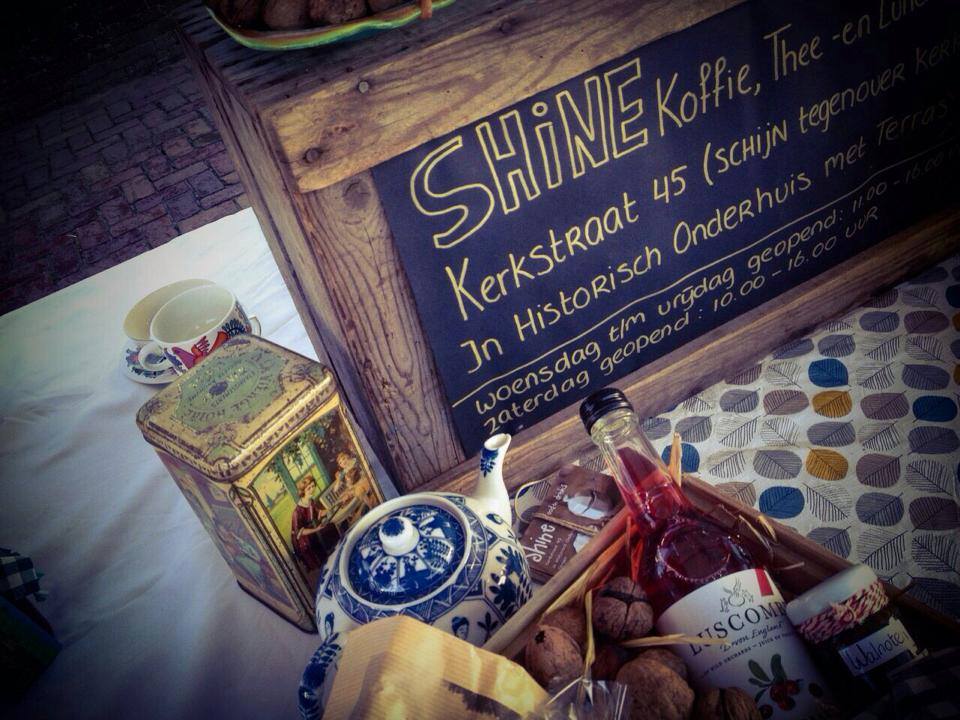 SHiNE Koffie, Thee -en Lun
Kerkstraat 45 (SCHiJN tegenover kerk
In Historisch Onderhuis met Terras
woensdag t/m vrijdag geopend: 11.00 - 16.00
zaterdag geopend: 10.00 - 16.00 uur
shine
LUSCOMB
Devon England
Walnote